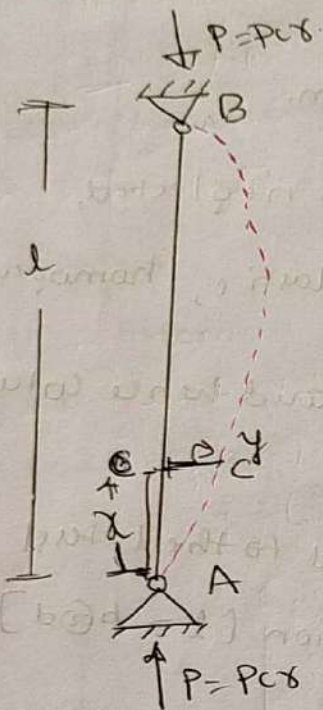 P=Pcr.
B
l
C y
x
A
P=Pcr